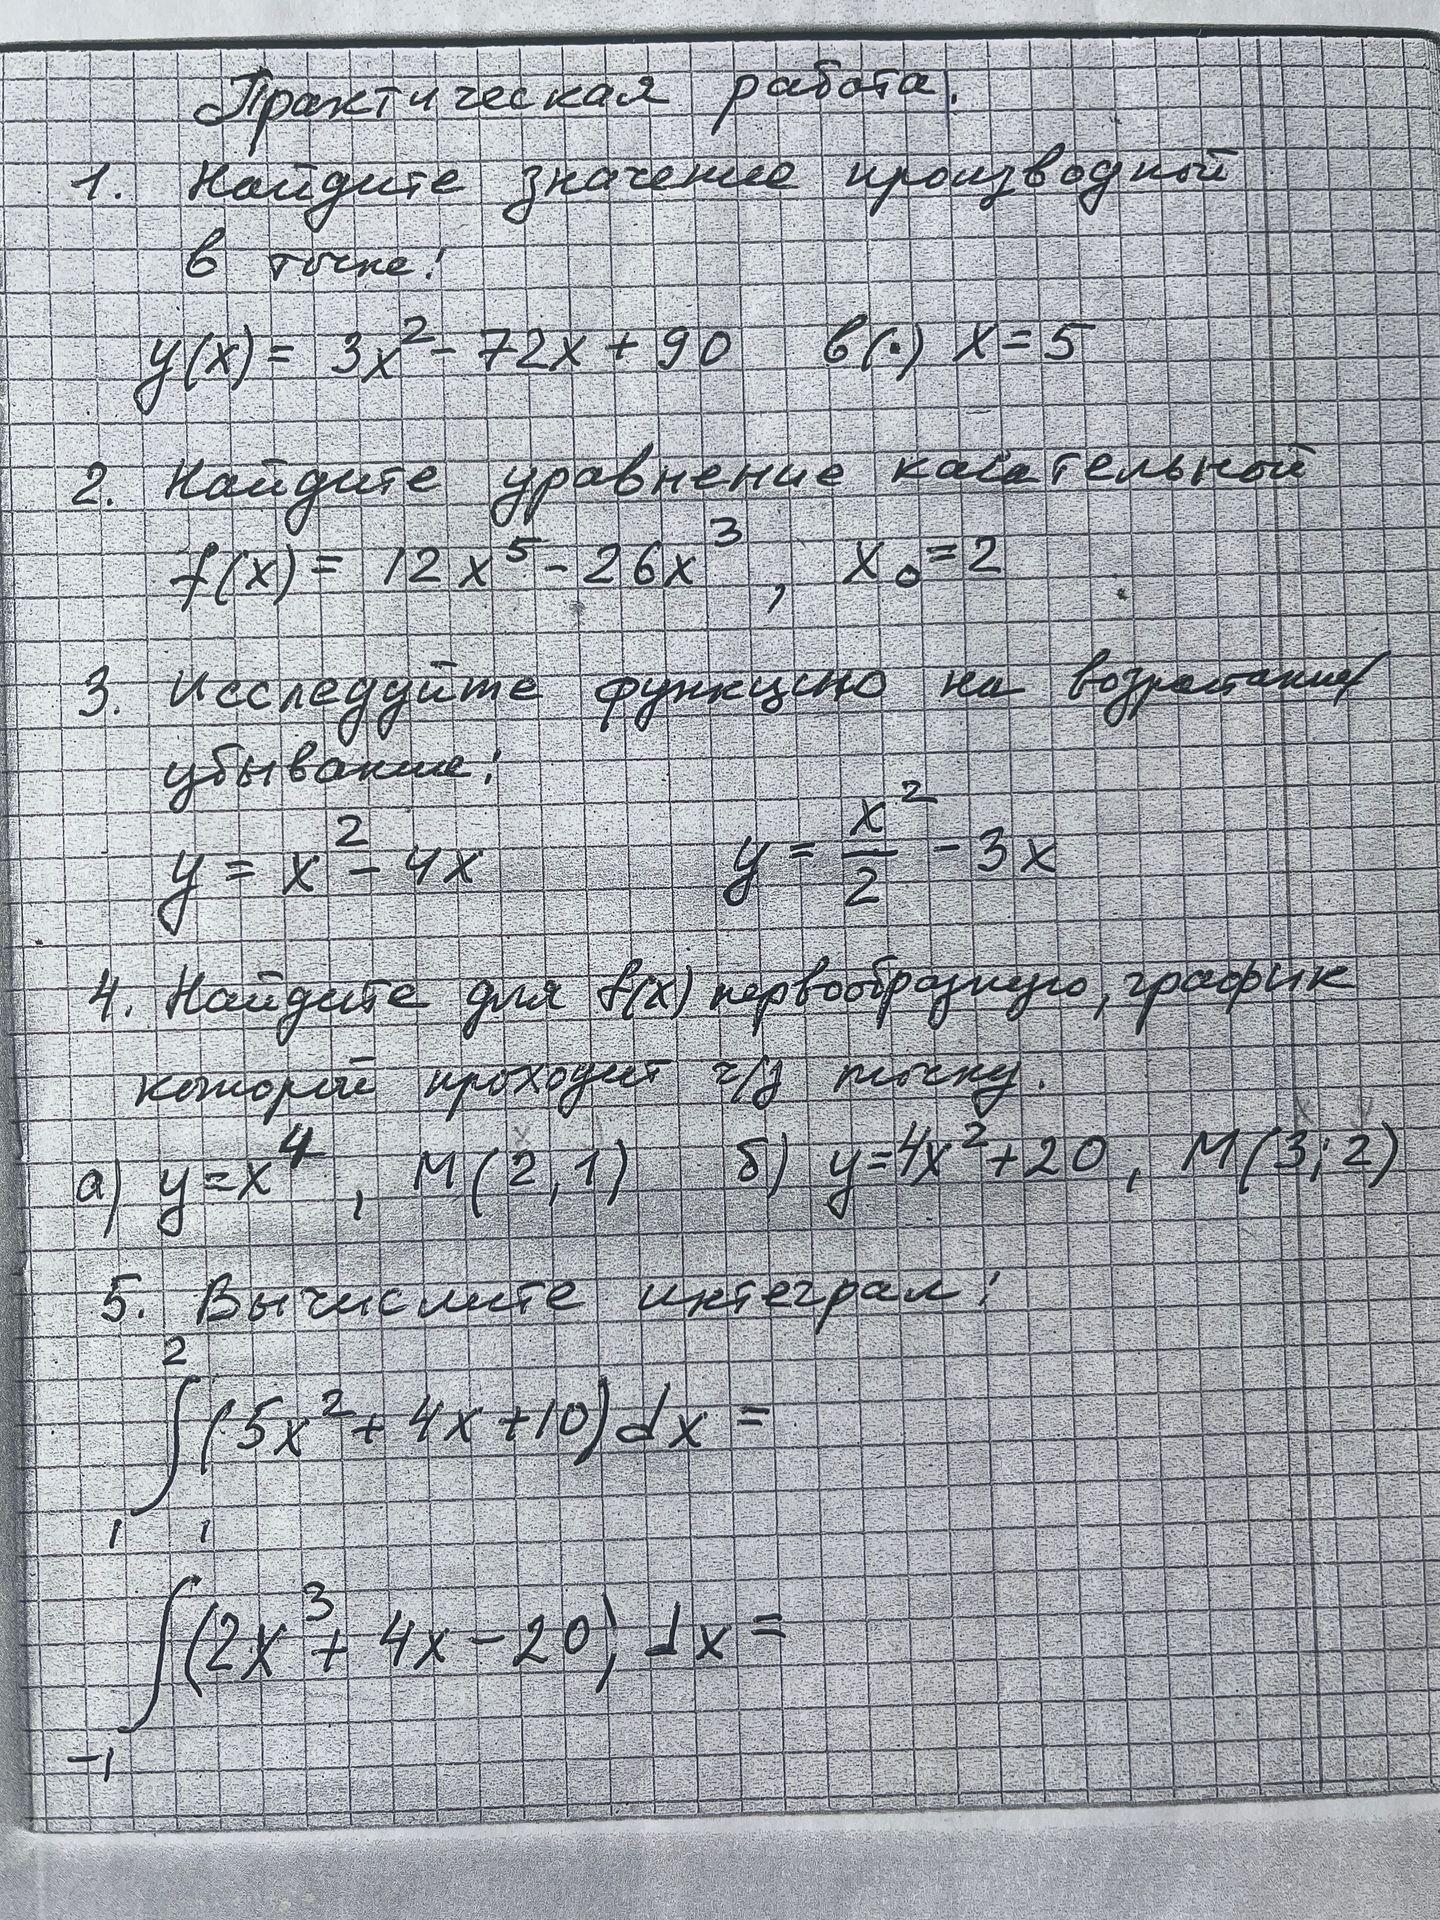 Практическая работа.
1. Найдите значение производной
в точке:
y(x) = 3x² - 72x + 90 в(·) x = 5
2. Найдите уравнение касательной
f(x) = 12x⁵ - 26x³, x₀ = 2
3. Исследуйте функцию на возрастание/
убывание:
y = x² - 4x y = x²/2 - 3x
4. Найдите для f(x) первообразную, график
которой проходит ч/з точку.
а) y = x⁴, M(2, 1) б) y = 4x² + 20, M(3; 2)
5. Вычислите интеграл:
∫₁² (5x² + 4x + 10) dx =
∫₋₁¹ (2x³ + 4x - 20) dx =